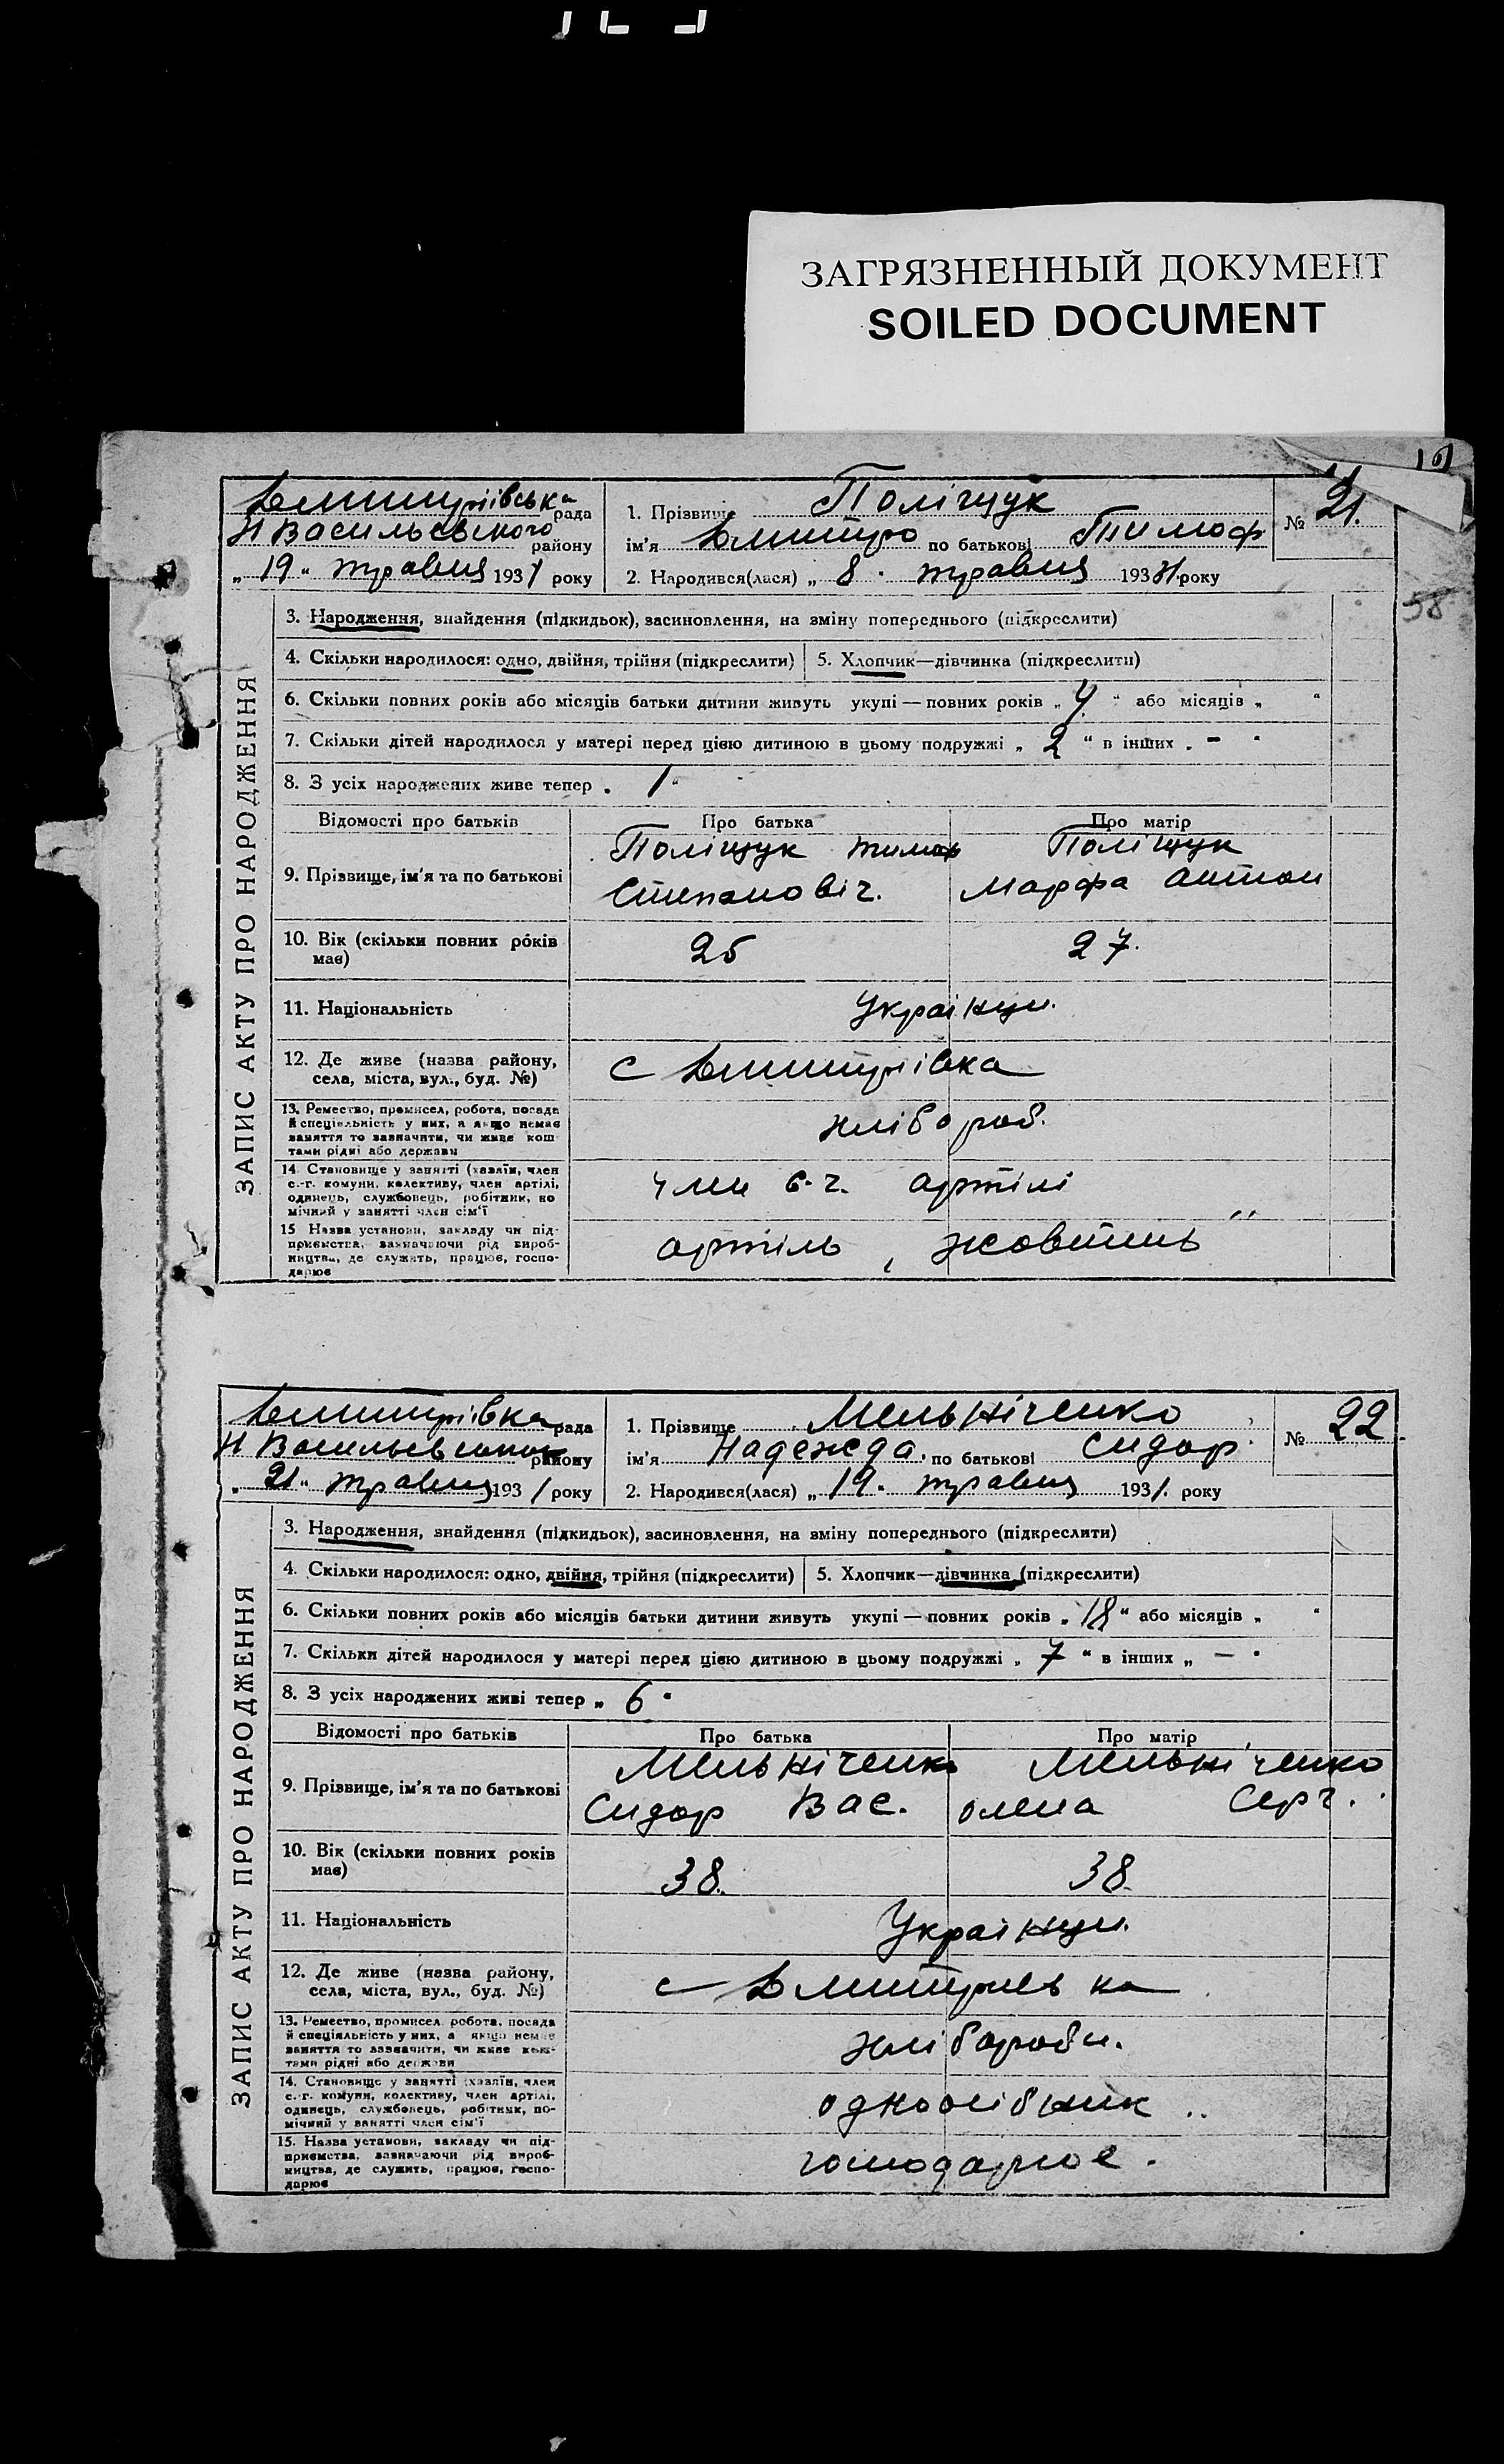 ЗАГРЯЗНЕННЫЙ ДОКУМЕНТ
SOILED DOCUMENT
58
Дмитрріівська рада
Н Васильевського району
„ 19 " травня 1931 року
1. Прізвище Поліщук
ім'я Дмитро по батькові Тимоф
2. Народився(лася) „ 8 . травня 1931. року
№ 21.
ЗАПИС АКТУ ПРО НАРОДЖЕННЯ
3. Народження, знайдення (підкидьок), засиновлення, на зміну попереднього (підкреслити)
4. Скільки народилося: одно, двійня, трійня (підкреслити) 5. Хлопчик—дівчинка (підкреслити)
6. Скільки повних років або місяців батьки дитини живуть укупі — повних років „ 4 " або місяців „ "
7. Скільки дітей народилося у матері перед цією дитиною в цьому подружжі „ 2 " в інших „ - "
8. З усіх народжених живе тепер „ 1 "
Відомості про батьків Про батька Про матір
9. Прізвище, ім'я та по батькові
Поліщук Тимоф Поліщук
Степановіч. Марфа Антон
10. Вік (скільки повних років має) 25 27.
11. Національність Українци.
12. Де живе (назва району, села, міста, вул., буд. №) с Дмитрівка
13. Ремество, промисел, робота, посада й спеціяльність у них, а якщо немає заняття то зазначити, чи живе коштами рідні або держави хлібороб.
14. Становище у занятті (хазяїн, член с.-г. комуни, колективу, член артілі, одинець, службовець, робітник, помічний у занятті член сім'ї член с.г. артілі
15. Назва установи, закладу чи підприємства, зазначаючи рід виробництва, де служить, працює, господарює артіль „ Жовтень "
Дмитріівка рада
Н Васильевського району
„ 21 " травня 1931 року
1. Прізвище Мельніченко
ім'я Надежда. по батькові Сидор.
2. Народився(лася) „ 19 . травня 1931. року
№ 22.
ЗАПИС АКТУ ПРО НАРОДЖЕННЯ
3. Народження, знайдення (підкидьок), засиновлення, на зміну попереднього (підкреслити)
4. Скільки народилося: одно, двійня, трійня (підкреслити) 5. Хлопчик—дівчинка (підкреслити)
6. Скільки повних років або місяців батьки дитини живуть укупі — повних років „ 18 " або місяців „ "
7. Скільки дітей народилося у матері перед цією дитиною в цьому подружжі „ 7 " в інших „ — "
8. З усіх народжених живі тепер „ 6 "
Відомості про батьків Про батька Про матір
9. Прізвище, ім'я та по батькові
Мельніченко Мельніченко
Сидор Вас. Олена Серг.
10. Вік (скільки повних років має) 38. 38.
11. Національність Українци.
12. Де живе (назва району, села, міста, вул., буд. №) с Дмитриевка
13. Ремество, промисел, робота, посада й спеціяльність у них, а якщо немає заняття то зазначити, чи живе коштами рідні або держави хлібороби.
14. Становище у занятті (хазяїн, член с.-г. комуни, колективу, член артілі, одинець, службовець, робітник, помічний у занятті член сім'ї одноосібник
15. Назва установи, закладу чи підприємства, зазначаючи рід виробництва, де служить, працює, господарює